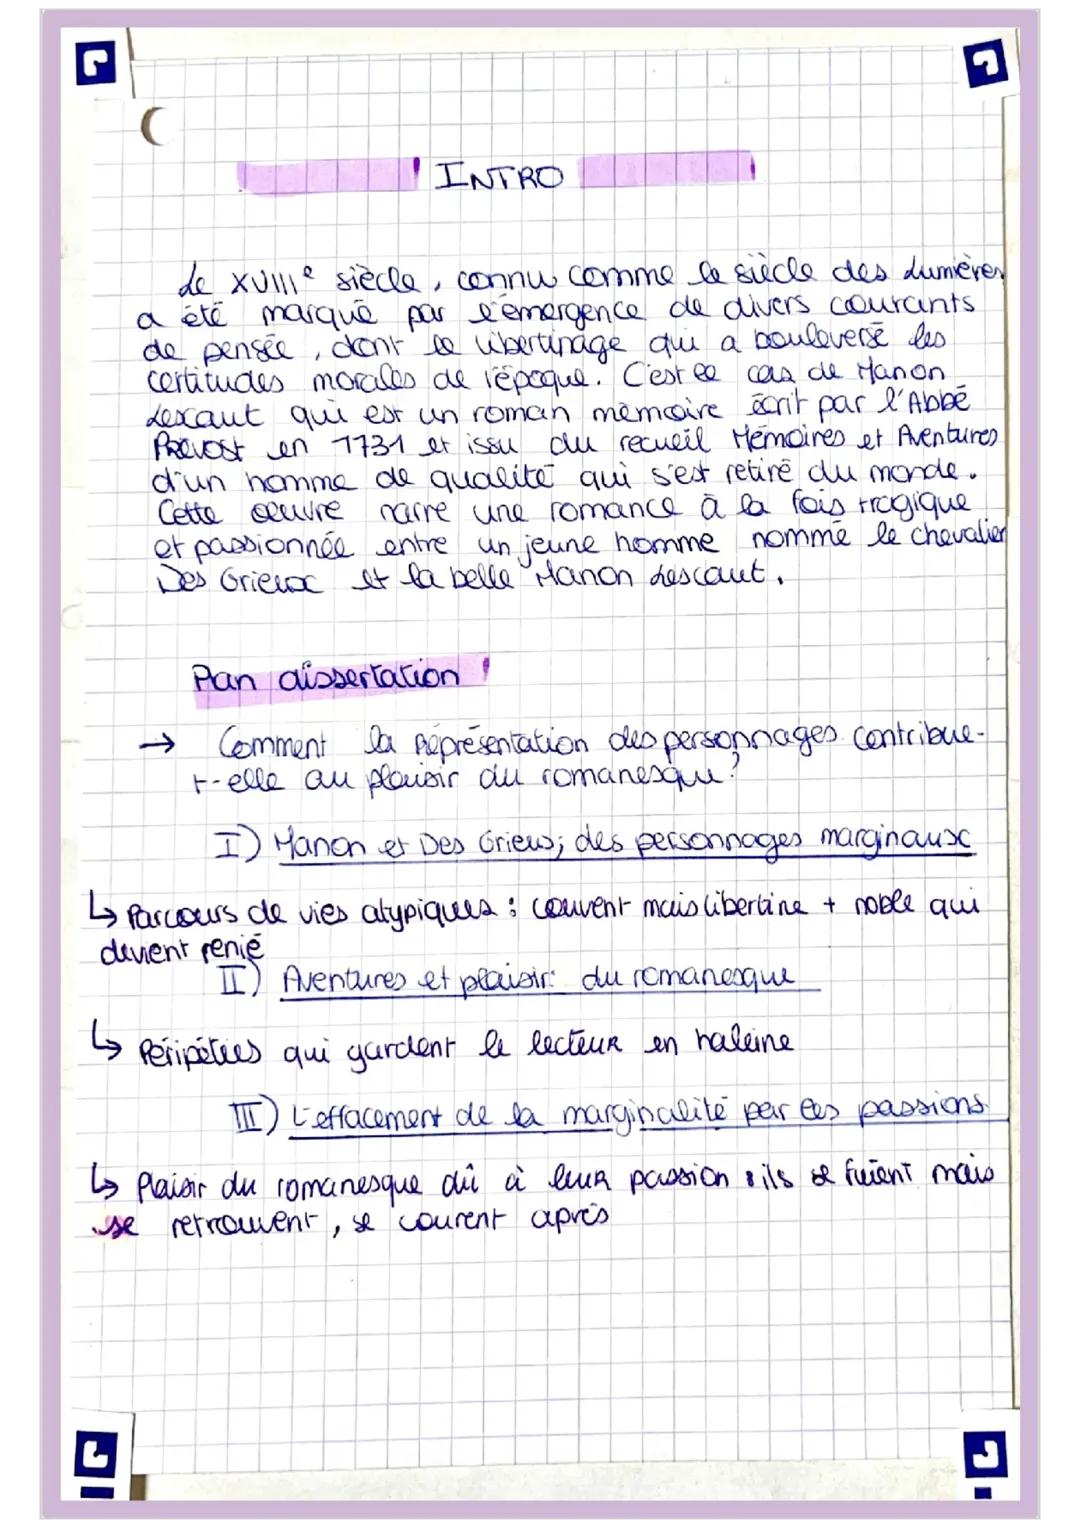 INTRO
Le XVIIIe siècle, connu comme le siècle des Lumières
a été marqué par l'émergence de divers courants
de pensée, dont le libertinage qui a bouleversé les
certitudes morales de l'époque. C'est le cas de Manon
Lescaut qui est un roman mémoire écrit par l'Abbé
Prévost en 1731 et issu du recueil Mémoires et Aventures
d'un homme de qualité qui s'est retiré du monde.
Cette œuvre narre une romance à la fois tragique
et passionnée entre un jeune homme nommé le chevalier
Des Grieux et la belle Manon Lescaut.
Plan dissertation
→ Comment la représentation des personnages contribue-
t-elle au plaisir du romanesque?
I) Manon et Des Grieux; des personnages marginaux
↳ Parcours de vies atypiques : couvent mais libertine + noble qui
devient renié
II) Aventures et plaisir: du romanesque
↳ Péripéties qui gardent le lecteur en haleine
III) L'effacement de la marginalité par les passions
↳ Plaisir du romanesque dû à leur passion : ils se fuient mais
se retrouvent, se courent après